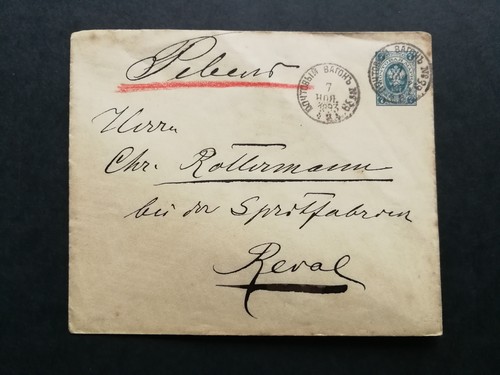 Ревель
ПОЧТОВЫЙ ВАГОНЪ
7
НОЯ.
1893
Herrn
Chr. Rottermann
bei der Spritfabrem
Reval